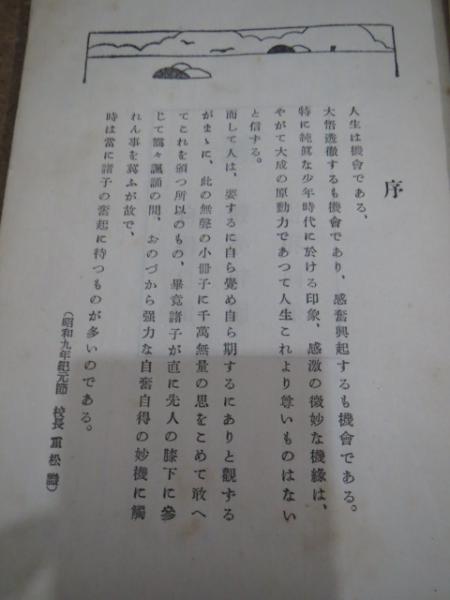 序
人生は機會である、
大悟透徹するも機會であり、感奮興起するも機會である。
特に純眞な少年時代に於ける印象、感激の微妙な機緣は、
やがて大成の原動力であつて人生これより尊いものはない
と信する。
而して人は、要するに自ら覺め自ら期するにありと觀ずる
がまゝに、此の無聲の小冊子に千萬無量の思をこめて敢へ
てこれを頒つ所以のもの、畢竟諸子が直に先人の膝下に參
じて諷誦の間、おのづから强力な自奮自得の妙機に觸
れん事を冀ふが故で、
時は當に諸子の奮起に待つものが多いのである。
(昭和九年紀元節 校長 重松